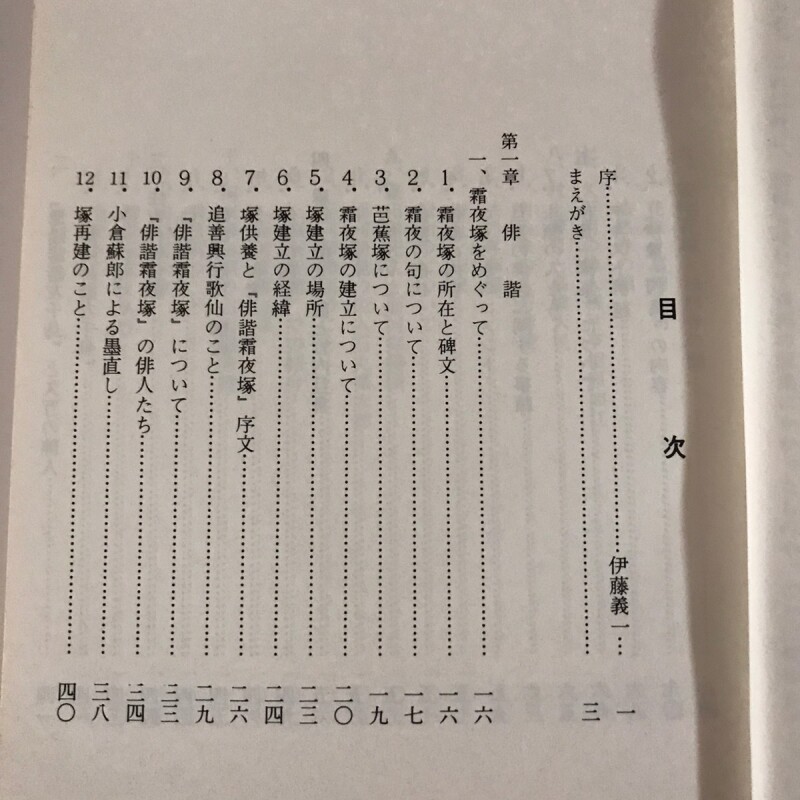 目次
序……………………………伊藤義一…一
まえがき……………………………三
第一章 俳諧
一、霜夜塚をめぐって……………………………一六
1. 霜夜塚の所在と碑文……………………………一六
2. 霜夜の句について……………………………一七
3. 芭蕉塚について……………………………一九
4. 霜夜塚の建立について……………………………二〇
5. 塚建立の場所……………………………二三
6. 塚建立の経緯……………………………二四
7. 塚供養と『俳諧霜夜塚』序文……………………………二六
8. 追善興行歌仙のこと……………………………二九
9. 『俳諧霜夜塚』について……………………………三三
10. 『俳諧霜夜塚』の俳人たち……………………………三四
11. 小倉蘇郎による墨直し……………………………三八
12. 塚再建のこと……………………………四〇